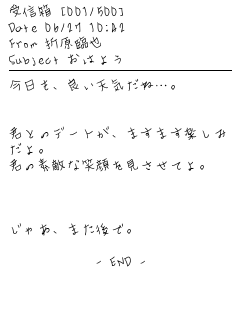 受信箱 [001/500]
Date 06/27 10:42
From 折原臨也
Subject おはよう
今日も、良い天気だね…。
君とのデートが、ますます楽しみ
だよ。
君の素敵な笑顔を見させてよ。
じゃあ、また後で。
- END -